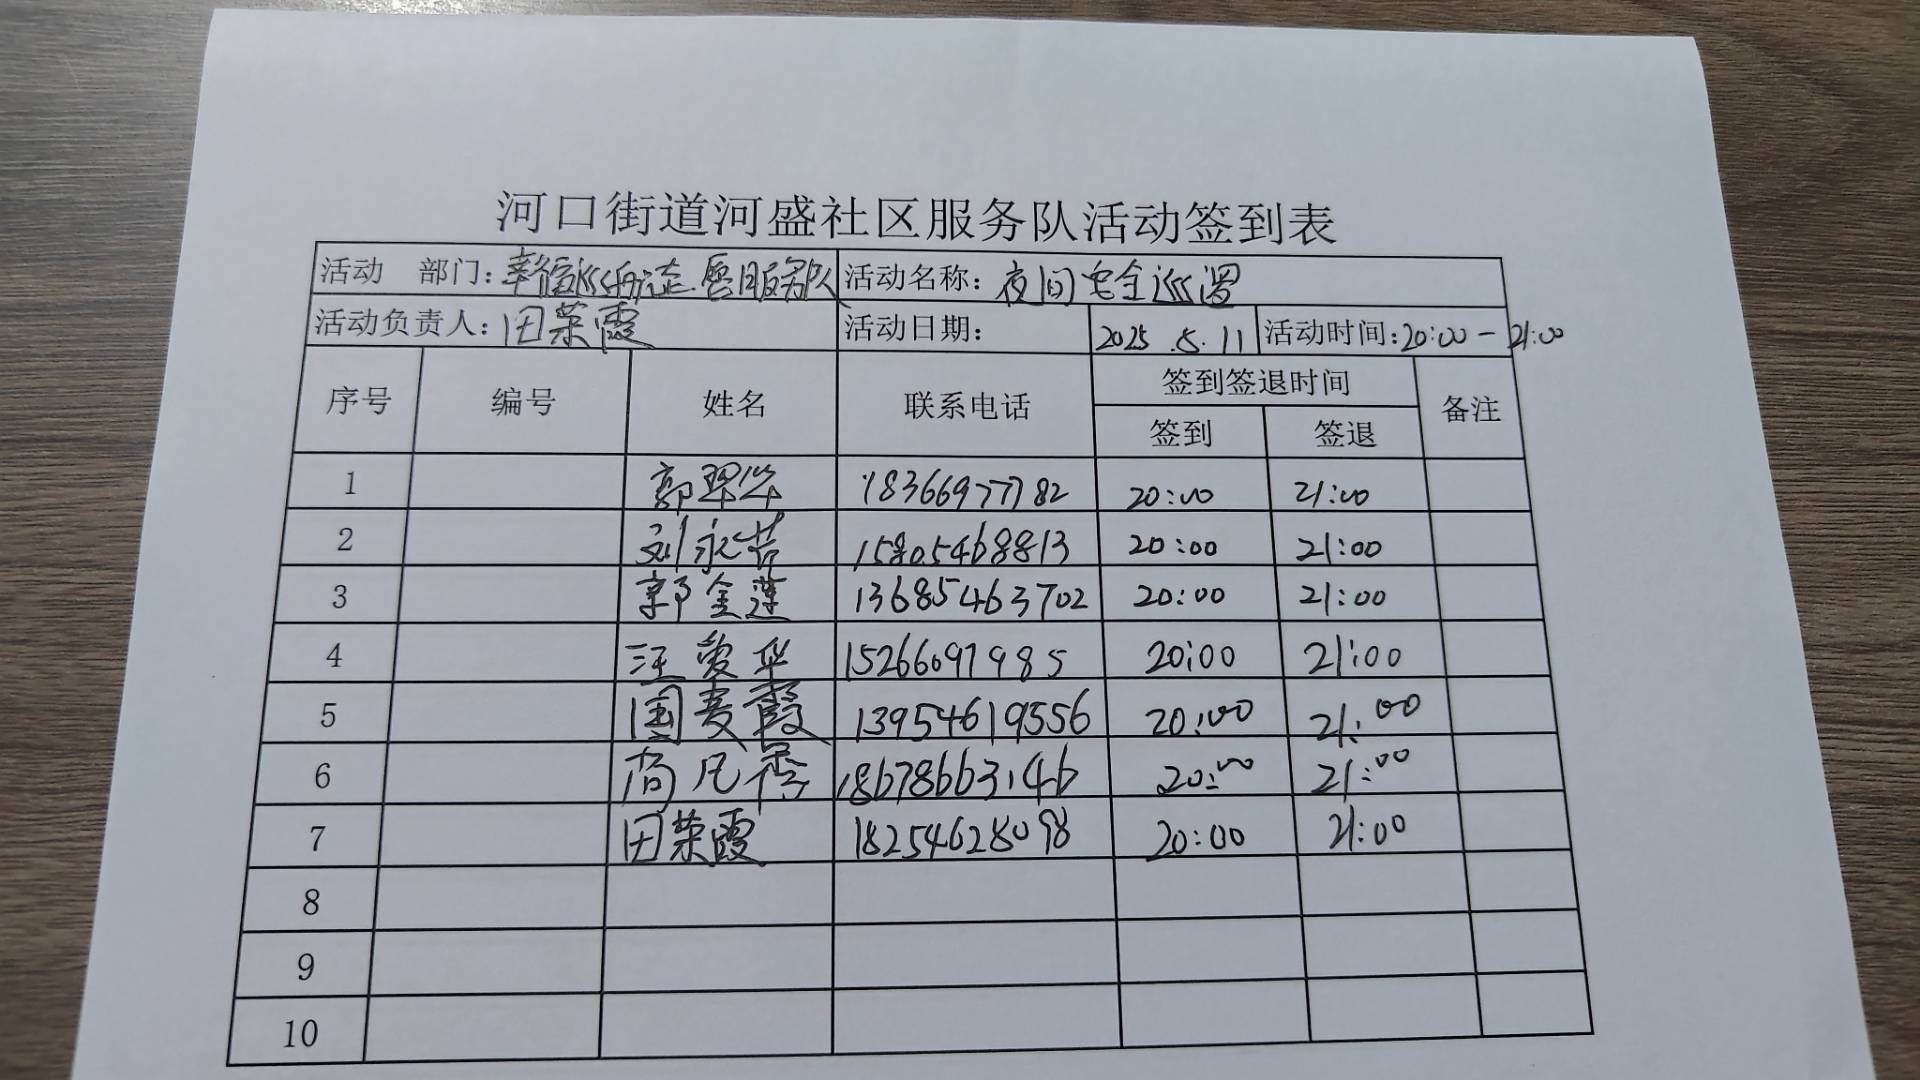 河口街道河盛社区服务队活动签到表
活动 部门: 幸福 服务队 活动名称: 夜间安全巡逻
活动负责人: 田荣霞 活动日期: 2025.5.11 活动时间: 20:00-21:00
序号 编号 姓名 联系电话 签到签退时间 备注
签到 签退
1 郭翠华 18366977782 20:00 21:00
2 刘永芳 15805468813 20:00 21:00
3 郭金莲 13685463702 20:00 21:00
4 汪爱华 15266091985 20:00 21:00
5 国麦霞 13954619556 20:00 21:00
6 尚凡秀 18678663146 20:00 21:00
7 田荣霞 18254628098 20:00 21:00
8
9
10